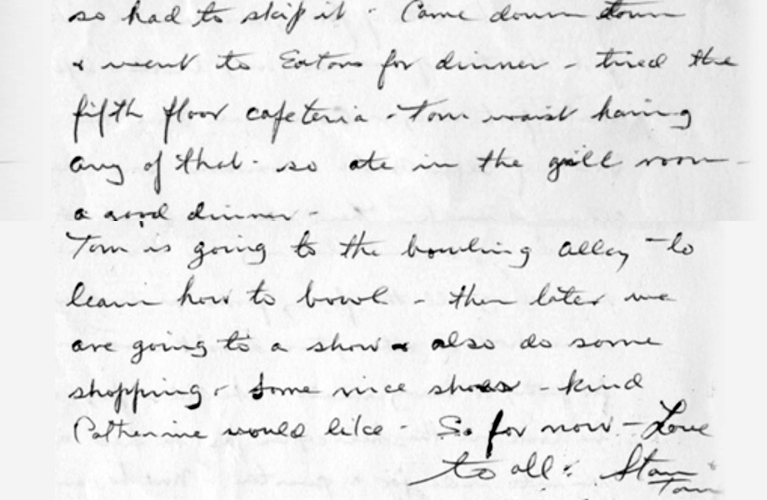 so had to skip it. Came down town
& went to Eatons for dinner - tried the
fifth floor cafeteria - Tom wasnt having
any of that - so ate in the grill room -
a good dinner -
Tom is going to the bowling alley - to
learn how to bowl - then later we
are going to a show & also do some
shopping - Some nice shoes - kind
Catherine would like - So for now - Love
to all: Stan
Tom